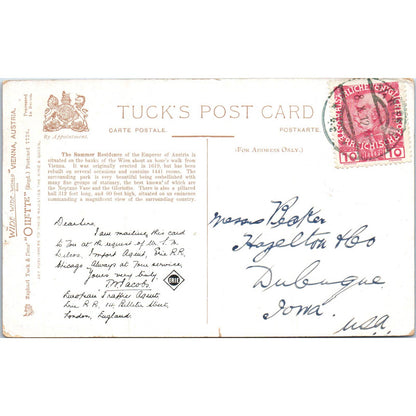 TUCK'S POST CARD
By Appointment.
CARTE POSTALE.
POSTKARTE.
(FOR ADDRESS ONLY.)
The Summer Residence of the Emperor of Austria is
situated on the banks of the Wien about an hour's walk from
Vienna. It was originally erected in 1619, but has been
rebuilt on several occasions and contains 1441 rooms. The
surrounding park is very beautiful being embellished with
many fine groups of statuary, the best known of which are
the Neptune Vase and the Gloriette. There is also a pillared
hall 312 feet long, and 60 feet high, situated on an eminence
commanding a magnificent view of the surrounding country.
Dear Sirs,
I am mailing this card
to you at request of
Import Agent, Erie R.R.,
Chicago. Always at your service,
Yours very truly,
M Jacobs
European Traffic Agent
Erie R.R.
London, England.
ERIE
Messrs Becker
Hazelton & Co
Dubuque
Iowa
U.S.A.
WIDE WIDE WORLD "VIENNA, AUSTRIA.
Raphael Tuck & Sons' "OILETTE" [Regd.] Postcard
10
10